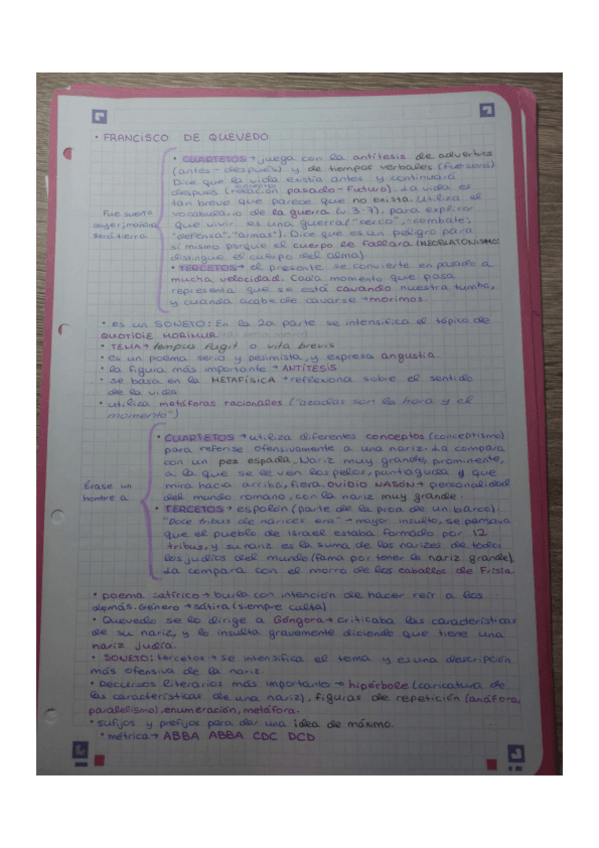 • FRANCISCO DE QUEVEDO
• CUARTETOS → juega con la antítesis de adverbios
(antes - después) y de tiempos verbales (fue será)
Dice que la vida existía antes y continuará
después (relación pasado - futuro). La vida es
tan breve que parece que no exista. Utiliza el
vocabulario de la guerra (v. 3-7), para explicar
que vivir es una guerra ("cerco", "combate",
"defensa", "armas"). Dice que es un peligro para
sí mismo porque el cuerpo le fallará (NEOPLATONISMO:
distingue el cuerpo del alma)
• TERCETOS → el presente se convierte en pasado a
mucha velocidad. Cada momento que pasa
representa que se está cavando nuestra tumba,
y cuando acabe de cavarse → morimos.
Fue sueño
ayer; mañana
será tierra
• es un SONETO: En la 2a parte se intensifica el tópico de
QUOTIDIE MORIMUR
• TEMA → tempus fugit o vita brevis
• es un poema serio y pesimista, y expresa angustia.
• la figura más importante → ANTÍTESIS
• se basa en la METAFÍSICA → reflexiona sobre el sentido
de la vida
• utiliza metáforas racionales ("azadas son la hora y el
momento")
• CUARTETOS → utiliza diferentes conceptos (conceptismo)
para referirse ofensivamente a una nariz. La compara
con un pez espada. Nariz muy grande, prominente,
a la que se le ven los pelos, puntiaguda y que
mira hacia arriba, fiera. OVIDIO NASÓN → personalidad
del mundo romano, con la nariz muy grande.
• TERCETOS → espolón (parte de la proa de un barco).
"Doce tribus de narices era" → mayor insulto, se pensaba
que el pueblo de Israel estaba formado por 12
tribus, y su nariz es la suma de las narizes de todos
los judíos del mundo (fama por tener la nariz grande).
La compara con el morro de los caballos de Frisia.
Érase un
hombre a
• poema satírico → burla con intención de hacer reír a los
demás. Género → sátira (siempre culta)
• Quevedo se lo dirige a Góngora → criticaba las características
de su nariz, y lo insulta gravemente diciendo que tiene una
nariz judía.
• SONETO: tercetos → se intensifica el tema y es una descripción
más ofensiva de la nariz.
• Recursos literarios más importante → hipérbole (caricatura de
las características de una nariz), figuras de repetición (anáfora,
paralelismo), enumeración, metáfora.
• sufijos y prefijos para dar una idea de máximo.
• métrica → ABBA ABBA CDC DCD